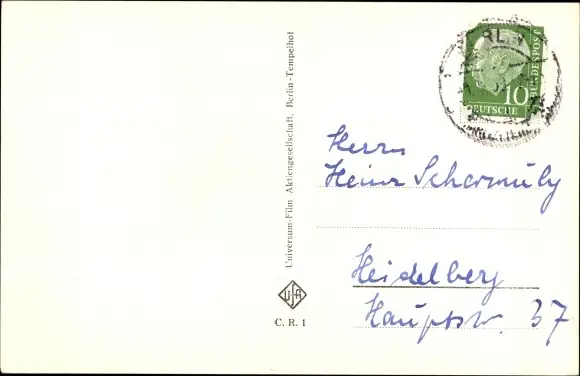 Universum-Film Aktiengesellschaft, Berlin-Tempelhof
UFA
C. R. 1
10
DEUTSCHE
BUNDESPOST
Herrn
Heinz Schermuly
Heidelberg
Hauptstr. 37